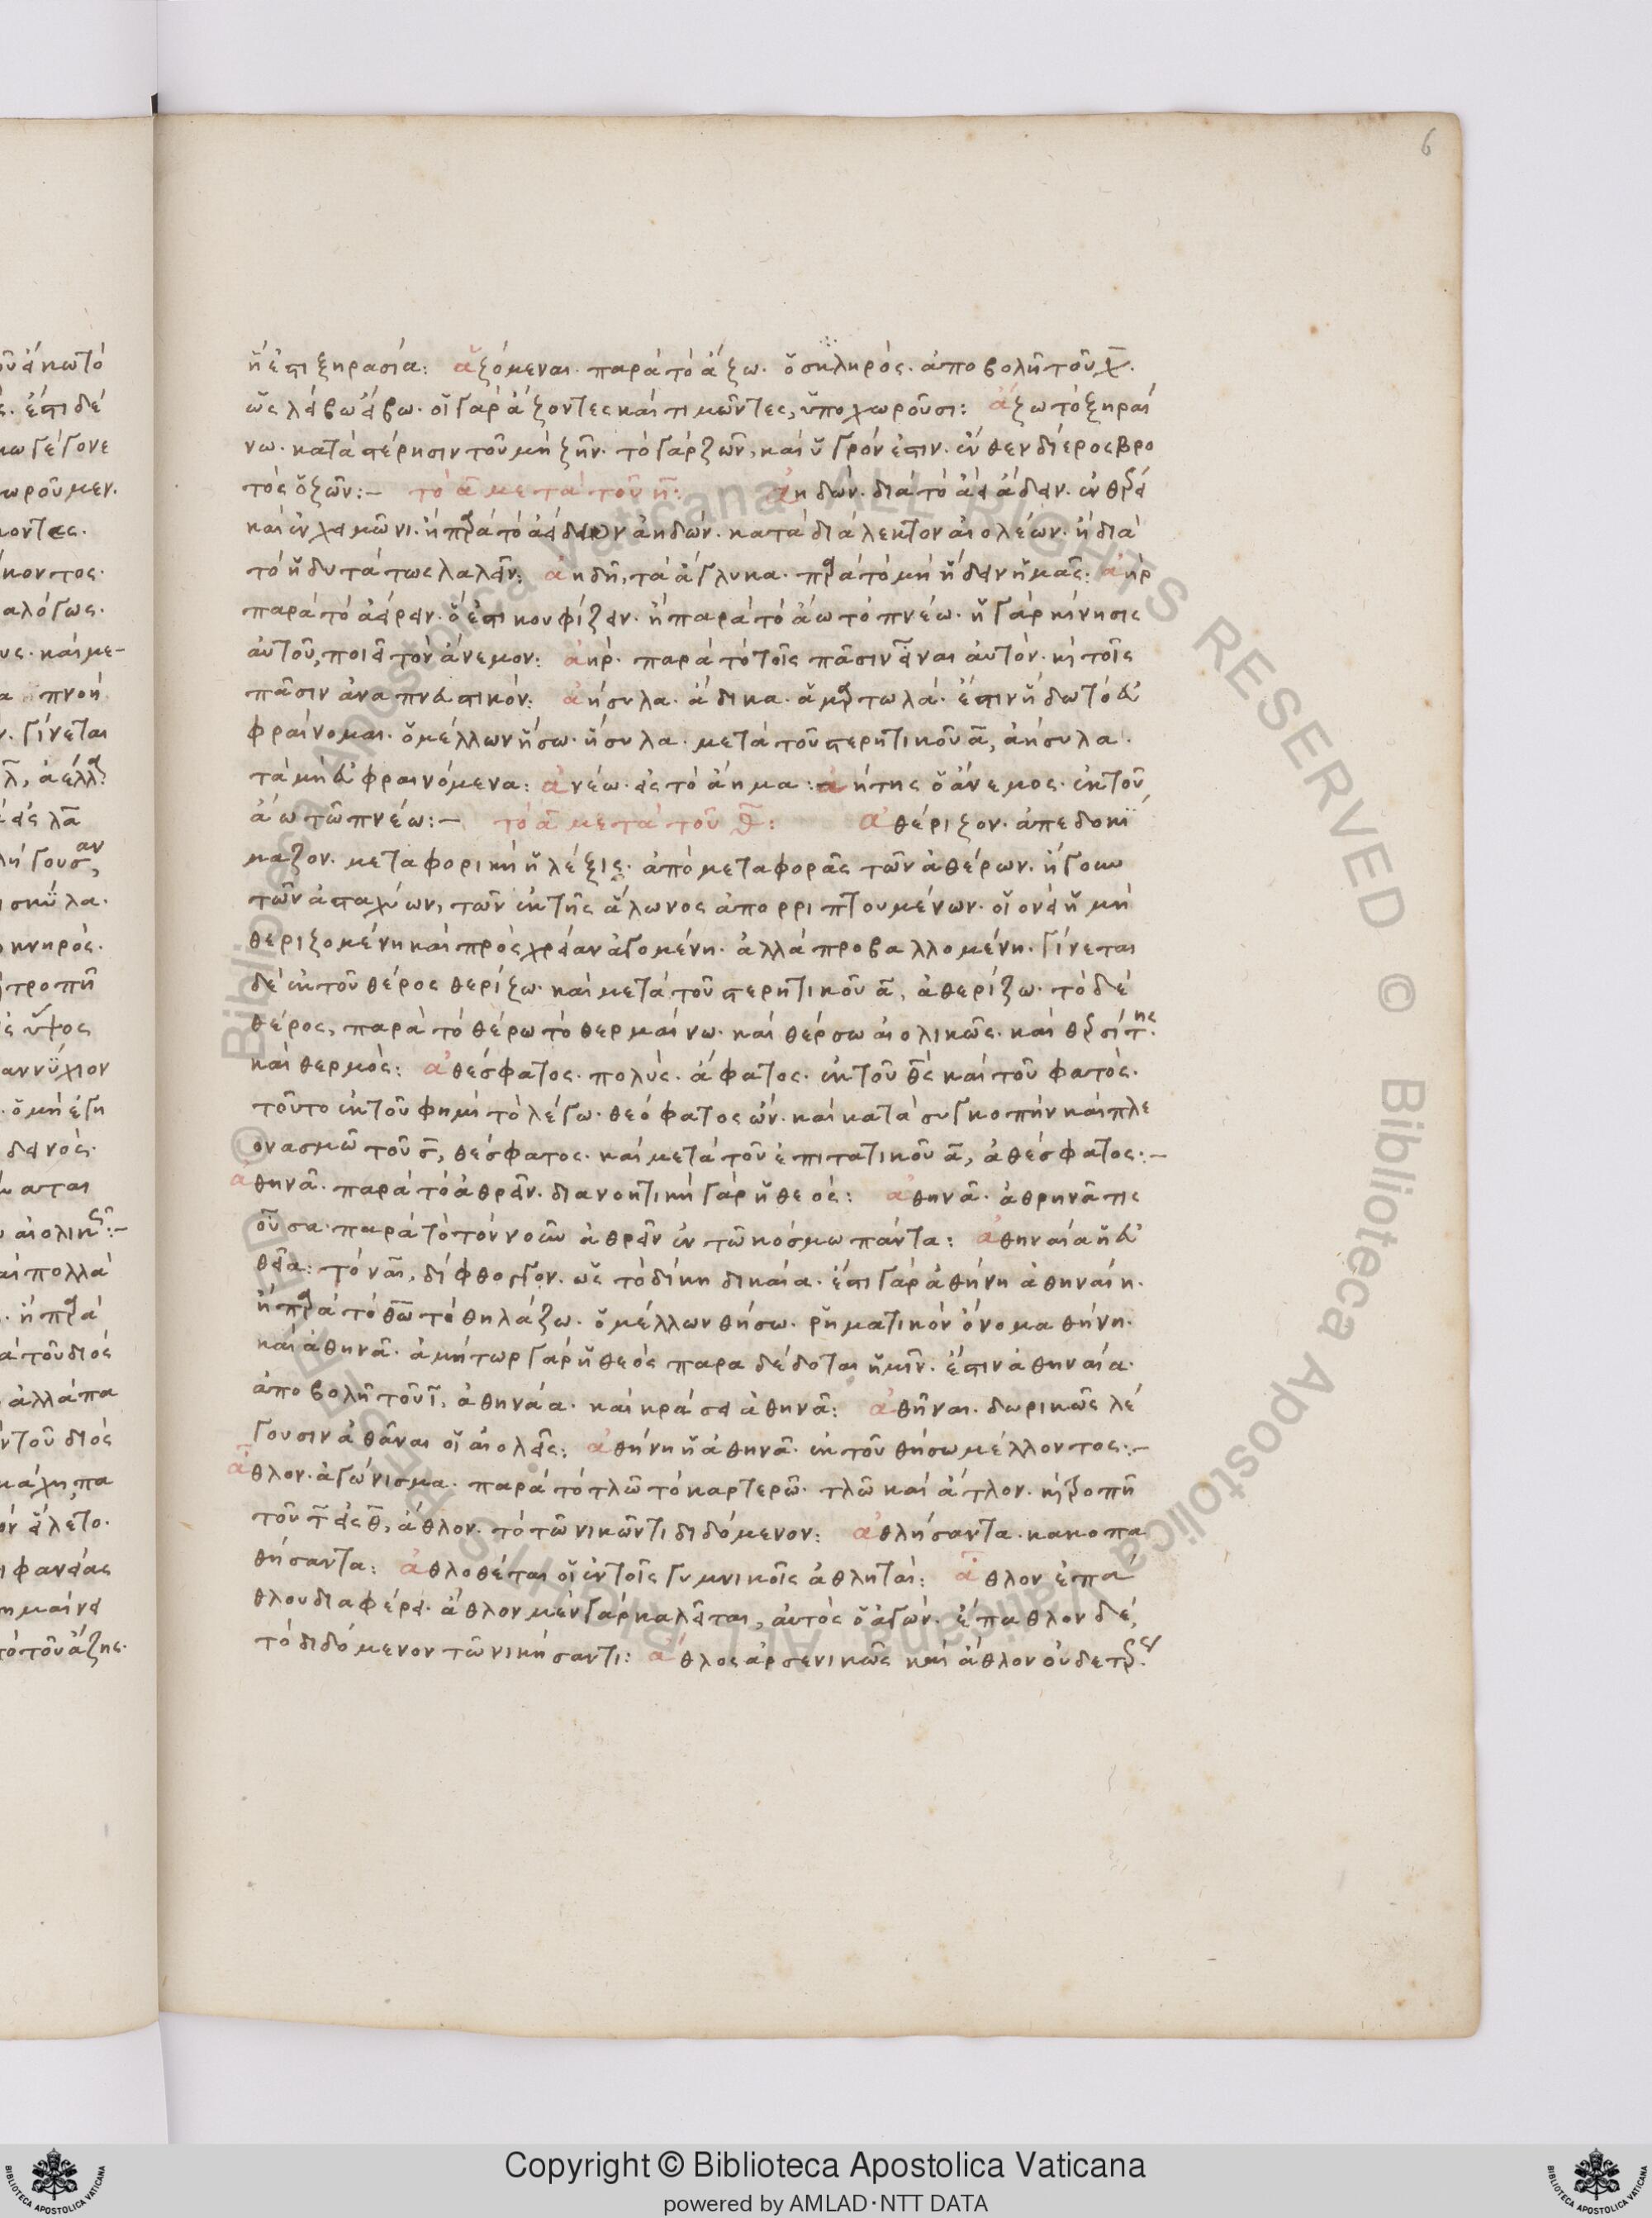 6
ἥ ἐστι ξηρασία: ἁζόμεναι. παρὰ τὸ ἄζω. ὁ σκληρός. ἀποβολῆ τοῦ χ.
ὡς λείβω εἴβω. οἱ γὰρ ἄζοντες καὶ τιμῶντες, ὑποχωροῦσι: ἄζω τὸ ξηραί
νω. κατὰ στέρησιν τοῦ μὴ ζῆν. τὸ γὰρ ζῶν, καὶ ὑγρόν ἐστιν. ἔνθεν διερὸς βρο
τὸς ὁ ζῶν:– τὸ α μετὰ τοῦ η: ἀηδών. διὰ τὸ ἀεὶ ἄδειν. ἐν θέρει
καὶ ἐν χειμῶνι. ἢ παρὰ τὸ ἀείδειν ἀηδών. κατὰ διάλεκτον αἰολέων. ἢ διὰ
τὸ ἡδυτάτως λαλεῖν: ἀηδῆ, τὰ ἄγλυκα. παρὰ τὸ μὴ ἥδειν ἡμᾶς: ἀὴρ
παρὰ τὸ ἀείρειν. ὅ ἐστι κουφίζειν. ἢ παρὰ τὸ ἄω τὸ πνέω. ἡ γὰρ κίνησις
αὐτοῦ, ποιεῖ τὸν ἄνεμον: ἀήρ. παρὰ τὸ τοῖς πᾶσιν εἶναι αὐτόν. καὶ τοῖς
πᾶσιν ἀναπνευστικόν: ἀήσυλα. ἄδικα. ἁμαρτωλά. ἔστιν ἥδω τὸ εὐ
φραίνομαι. ὁ μέλλων ἥσω. ἥσυλα. μετὰ τοῦ στερητικοῦ α, ἀήσυλα.
τὰ μὴ εὐφραινόμενα: ἀνέω. εἰς τὸ ἄημα: ἀήτης ὁ ἄνεμος. ἐκ τοῦ
ἄω τῶ πνέω:– τὸ α μετὰ τοῦ θ: ἀθέριζον. ἀπεδοκί
μαζον. μεταφορικὴ ἡ λέξις. ἀπὸ μεταφορᾶς τῶν ἀθέρων. ἤγουν
τῶν ἀσταχύων, τῶν ἐκ τῆς ἅλωνος ἀπορριπτουμένων. οἱονεὶ ἡ μὴ
θεριζομένη καὶ πρὸς χρείαν ἀγομένη. ἀλλὰ προβαλλομένη. γίνεται
δὲ ἐκ τοῦ θέρος θερίζω. καὶ μετὰ τοῦ στερητικοῦ α, ἀθερίζω. τὸ δὲ
θέρος, παρὰ τὸ θέρω τὸ θερμαίνω. καὶ θέρσω αἰολικῶς. καὶ θερσίτης.
καὶ θερμός: ἀθέσφατος. πολύς. ἄφατος. ἐκ τοῦ θς καὶ τοῦ φατός.
τοῦτο ἐκ τοῦ φημὶ τὸ λέγω. θεόφατος ὤν. καὶ κατὰ συγκοπὴν καὶ πλε
ονασμῶ τοῦ σ, θέσφατος. καὶ μετὰ τοῦ ἐπιτατικοῦ α, ἀθέσφατος:–
ἀθηνᾶ. παρὰ τὸ ἀθρεῖν. διανοητικὴ γὰρ ἡ θεός: ἀθηνᾶ. ἀθρηνᾶ τις
οὖσα. παρὰ τὸ τὸν νοῦν ἀθρεῖν ἐν τῶ κόσμω πάντα: ἀθηναία ἡ εὐ
θεῖα: τὸ ναι, δίφθογγον. ὡς τὸ δίκη δικαία. ἔστι γὰρ ἀθήνη ἀθηναίη.
ἢ παρὰ τὸ θῶ τὸ θηλάζω. ὁ μέλλων θήσω. ῥηματικὸν ὄνομα θήνη.
καὶ ἀθηνᾶ. ἀμήτωρ γὰρ ἡ θεὸς παραδέδοται ἡμῖν. ἔστιν ἀθηναία.
ἀποβολῆ τοῦ ι, ἀθηνάα. καὶ κράσει ἀθηνᾶ: ἀθῆναι. δωρικῶς λέ
γουσιν ἀθᾶναι οἱ αἰολεῖς: ἀθήνη ἡ ἀθηνᾶ. ἐκ τοῦ θήσω μέλλοντος:–
ἆθλον. ἀγώνισμα. παρὰ τὸ τλῶ τὸ καρτερῶ. τλῶ καὶ ἄτλον. καὶ τροπῆ
τοῦ τ εἰς θ, ἄθλον. τὸ τῶ νικῶντι διδόμενον: ἀθλήσαντα. κακοπα
θήσαντα: ἀθλοθέται οἱ ἐν τοῖς γυμνικοῖς ἀθληταί: ἆθλον ἐπά
θλου διαφέρει. ἄθλον μὲν γὰρ καλεῖται, αὐτὸς ὁ ἀγών. ἔπαθλον δέ,
τὸ διδόμενον τῶ νικήσαντι: ἄθλος ἀρσενικῶς καὶ ἄθλον οὐδετέρως.
Copyright © Biblioteca Apostolica Vaticana
powered by AMLAD·NTT DATA